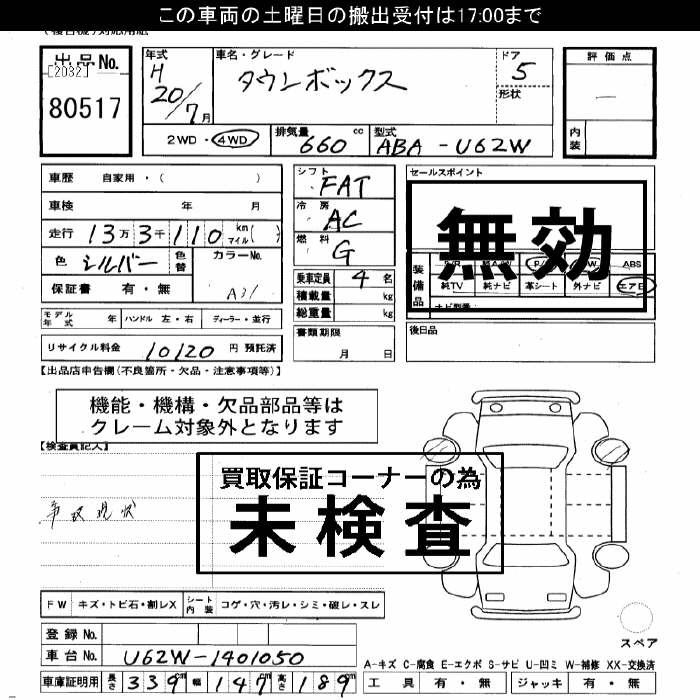 この車両の土曜日の搬出受付は17:00まで
出品No.
[2032]
80517
年式
H
20/7月
車名・グレード
タウンボックス
ドア
5
形状
評価点
内装
2WD・4WD
排気量
660 cc
型式
ABA-U62W
車歴 自家用・( )
車検 年 月
走行 13万3千110 km マイル( )
色 シルバー 色替
カラーNo.
A31
保証書 有・無
シフト
FAT
冷房
AC
燃料
G
乗車定員 4名
積載量 kg
総重量 kg
セールスポイント
無効
装備品
ABS
純TV 純ナビ 革シート 外ナビ エアB
モデル年式 年 ハンドル 左・右 ディーラー・並行
書類期限
月 日
後日品
リサイクル料金 10120 円 預託済
【出品店申告欄(不良箇所・欠品・注意事項等)】
機能・機構・欠品部品等は
クレーム対象外となります
【検査員記入】
買取保証コーナーの為
未検査
事故現状
FW キズ・トビ石・割レX シート内装 コゲ・穴・汚レ・シミ・破レ・スレ
スペア
登録No.
車台No. U62W-1401050
A-キズ C-腐食 E-エクボ S-サビ U-凹ミ W-補修 XX-交換済
車庫証明用 長さ 339m 幅 147m 高さ 189m
工具 有・無 ジャッキ 有・無